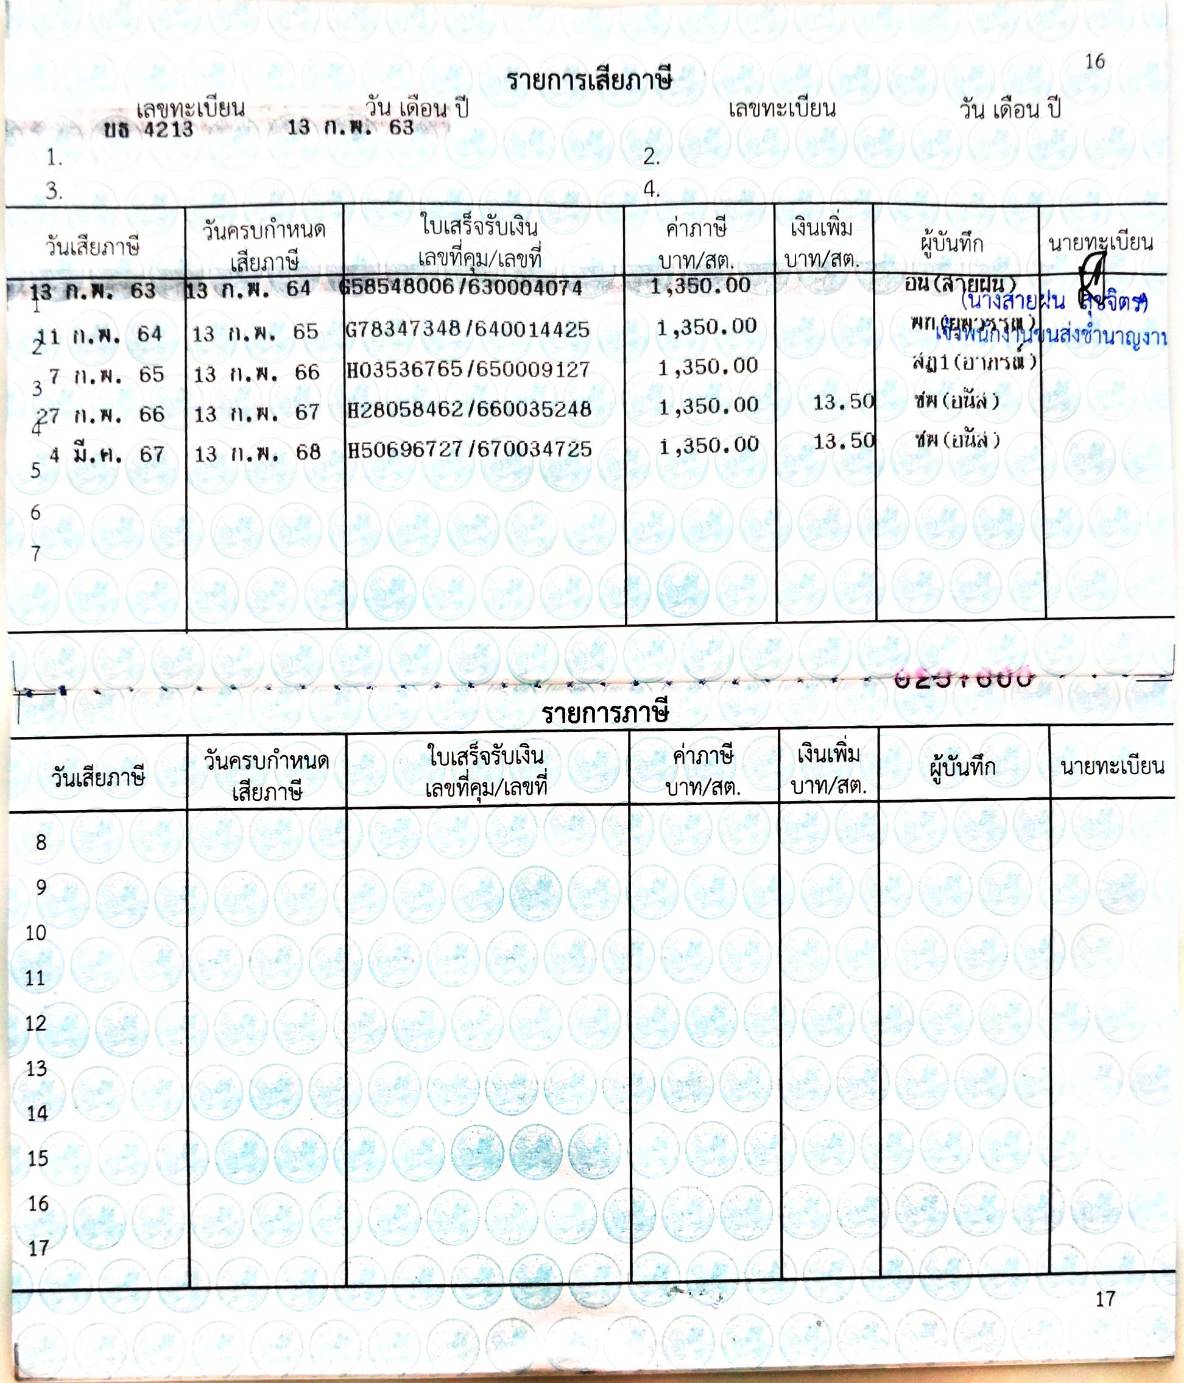 16
รายการเสียภาษี
เลขทะเบียน วัน เดือน ปี เลขทะเบียน วัน เดือน ปี
ยธ 4213 13 ก.พ. 63
1. 2.
3. 4.
วันเสียภาษี วันครบกำหนดเสียภาษี ใบเสร็จรับเงิน เลขที่คุม/เลขที่ ค่าภาษี บาท/สต. เงินเพิ่ม บาท/สต. ผู้บันทึก นายทะเบียน
1 13 ก.พ. 63 13 ก.พ. 64 G58548006/630004074 1,350.00 อน(สายฝน)
(นางสายฝน สุขจิตร)
2 11 ก.พ. 64 13 ก.พ. 65 G78347348/640014425 1,350.00
เจ้าพนักงานขนส่งชำนาญงาน
3 7 ก.พ. 65 13 ก.พ. 66 H03536765/650009127 1,350.00 สฎ1(อาภรณ์)
4 27 ก.พ. 66 13 ก.พ. 67 H28058462/660035248 1,350.00 13.50 ชพ(อนัส)
5 4 มี.ค. 67 13 ก.พ. 68 H50696727/670034725 1,350.00 13.50 ชพ(อนัส)
6
7
รายการภาษี
วันเสียภาษี วันครบกำหนดเสียภาษี ใบเสร็จรับเงิน เลขที่คุม/เลขที่ ค่าภาษี บาท/สต. เงินเพิ่ม บาท/สต. ผู้บันทึก นายทะเบียน
8
9
10
11
12
13
14
15
16
17
17